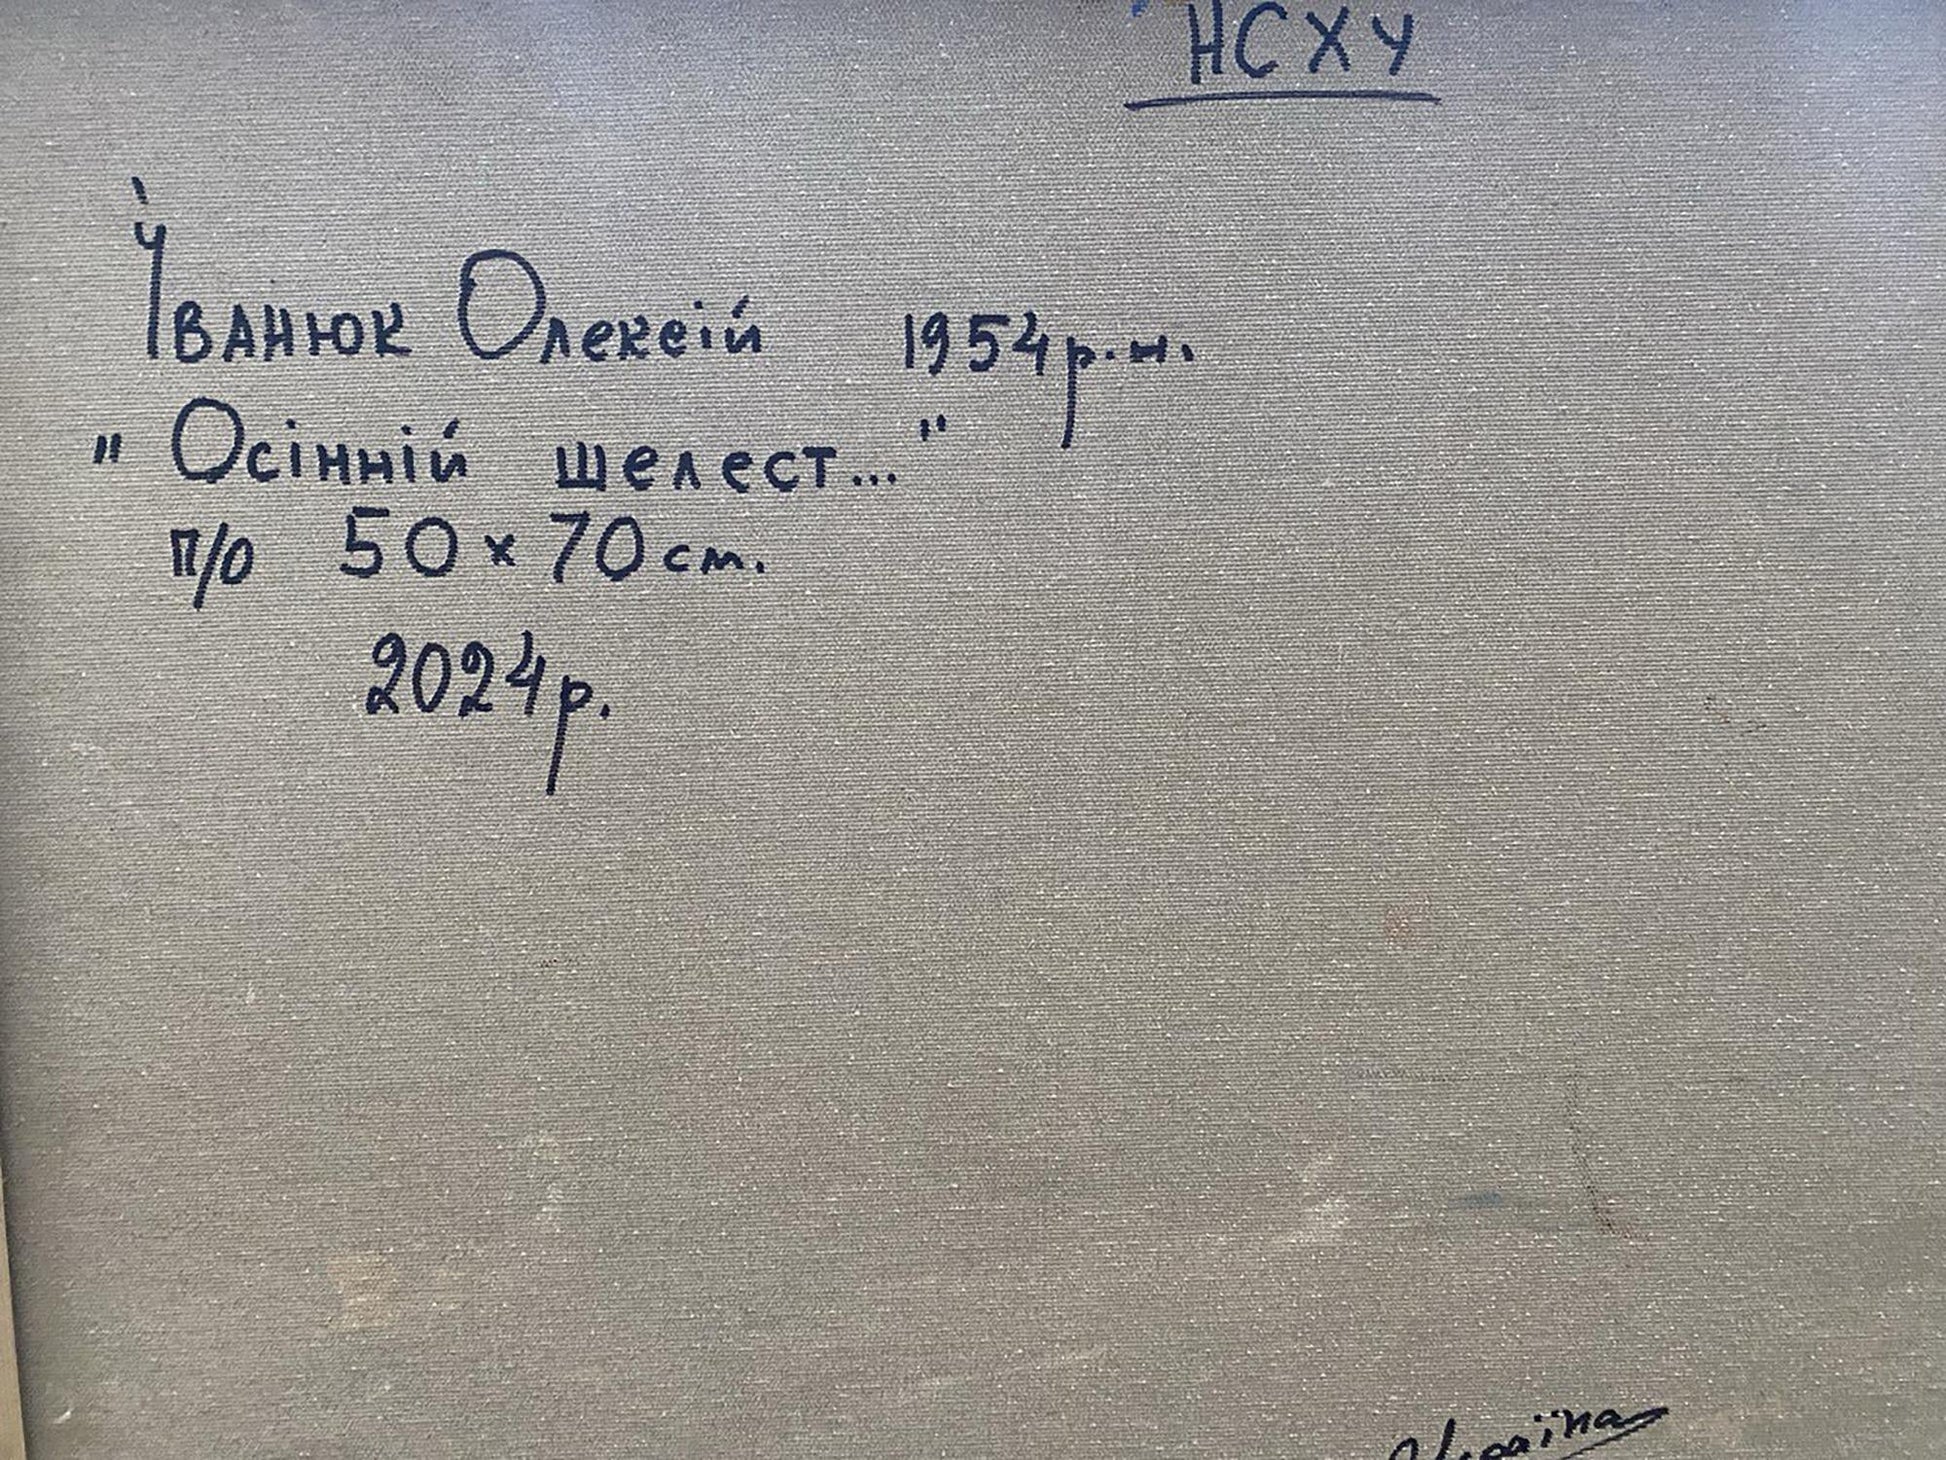 НСХУ
Іванюк Олексій 1954р.н.
"Осінній шелест..."
п/о 50×70см.
2024р.
Україна